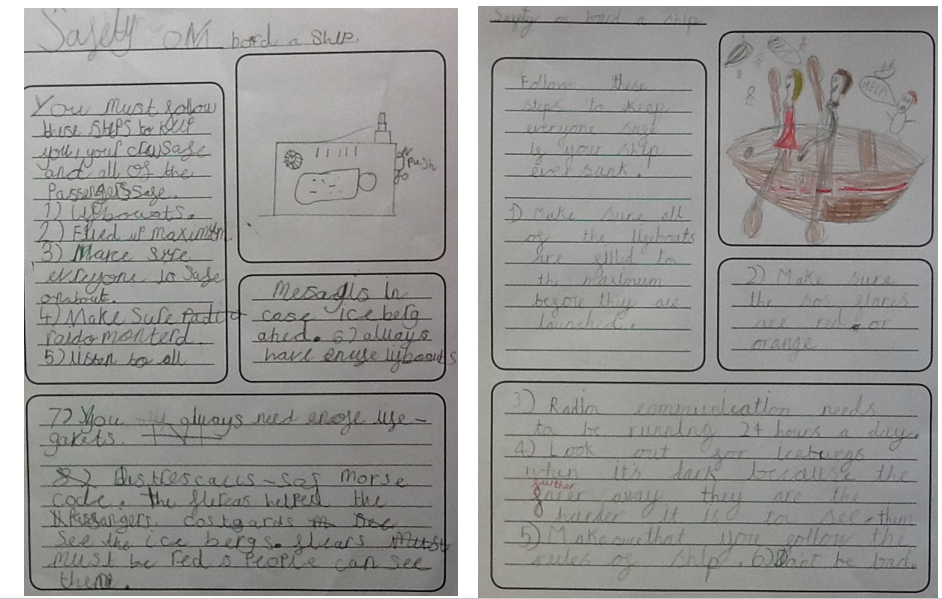 Safety on board a ship.
You must follow
these steps to keep
you, your crew safe
and all of the
Passengers safe.
1) lifboats.
2) Filled up maximum.
3) Make sure
everyone is safe
onabout.
4) Make sure
raido monterd.
5) listen to all
on
Push
messages in
case ice berg
ahed. 6) allways
have enuse lifboats
7) You always need enose life-
gakets.
8) Distrescalls - sos morse
code. the flireas helped the
Passangers. costgards
see the ice bergs. flears
must be red so People can see
them.
Safety on bord a ship
Follow these
steps to keep
everyone safe
if your ship
ever sank.
1) Make sure all
of the lifboats
are filled to
the maximum
before they are
launched.
HELP!
2) Make sure
the sos flares
are red or
orange
3) Radio communication needs
to be running 24 hours a day.
4) Look out for Iceburgs
when it's dark because the
further
farer away they are the
harder it is to see them
5) Make sure that you follow the
rules of ship. 6) Don't be bad.